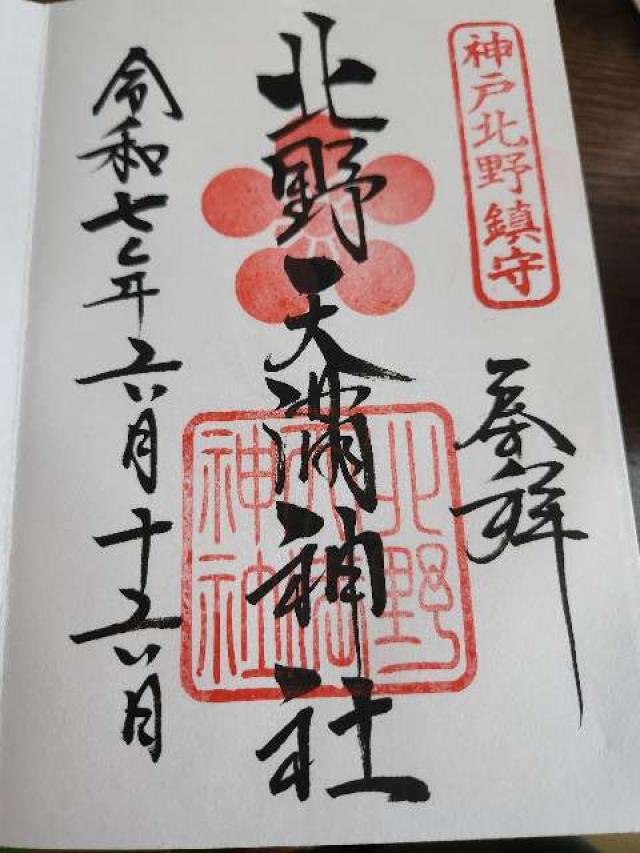 神戸北野鎮守
奉拝
北野天満神社
北野
天満
神社
令和七年六月十六日